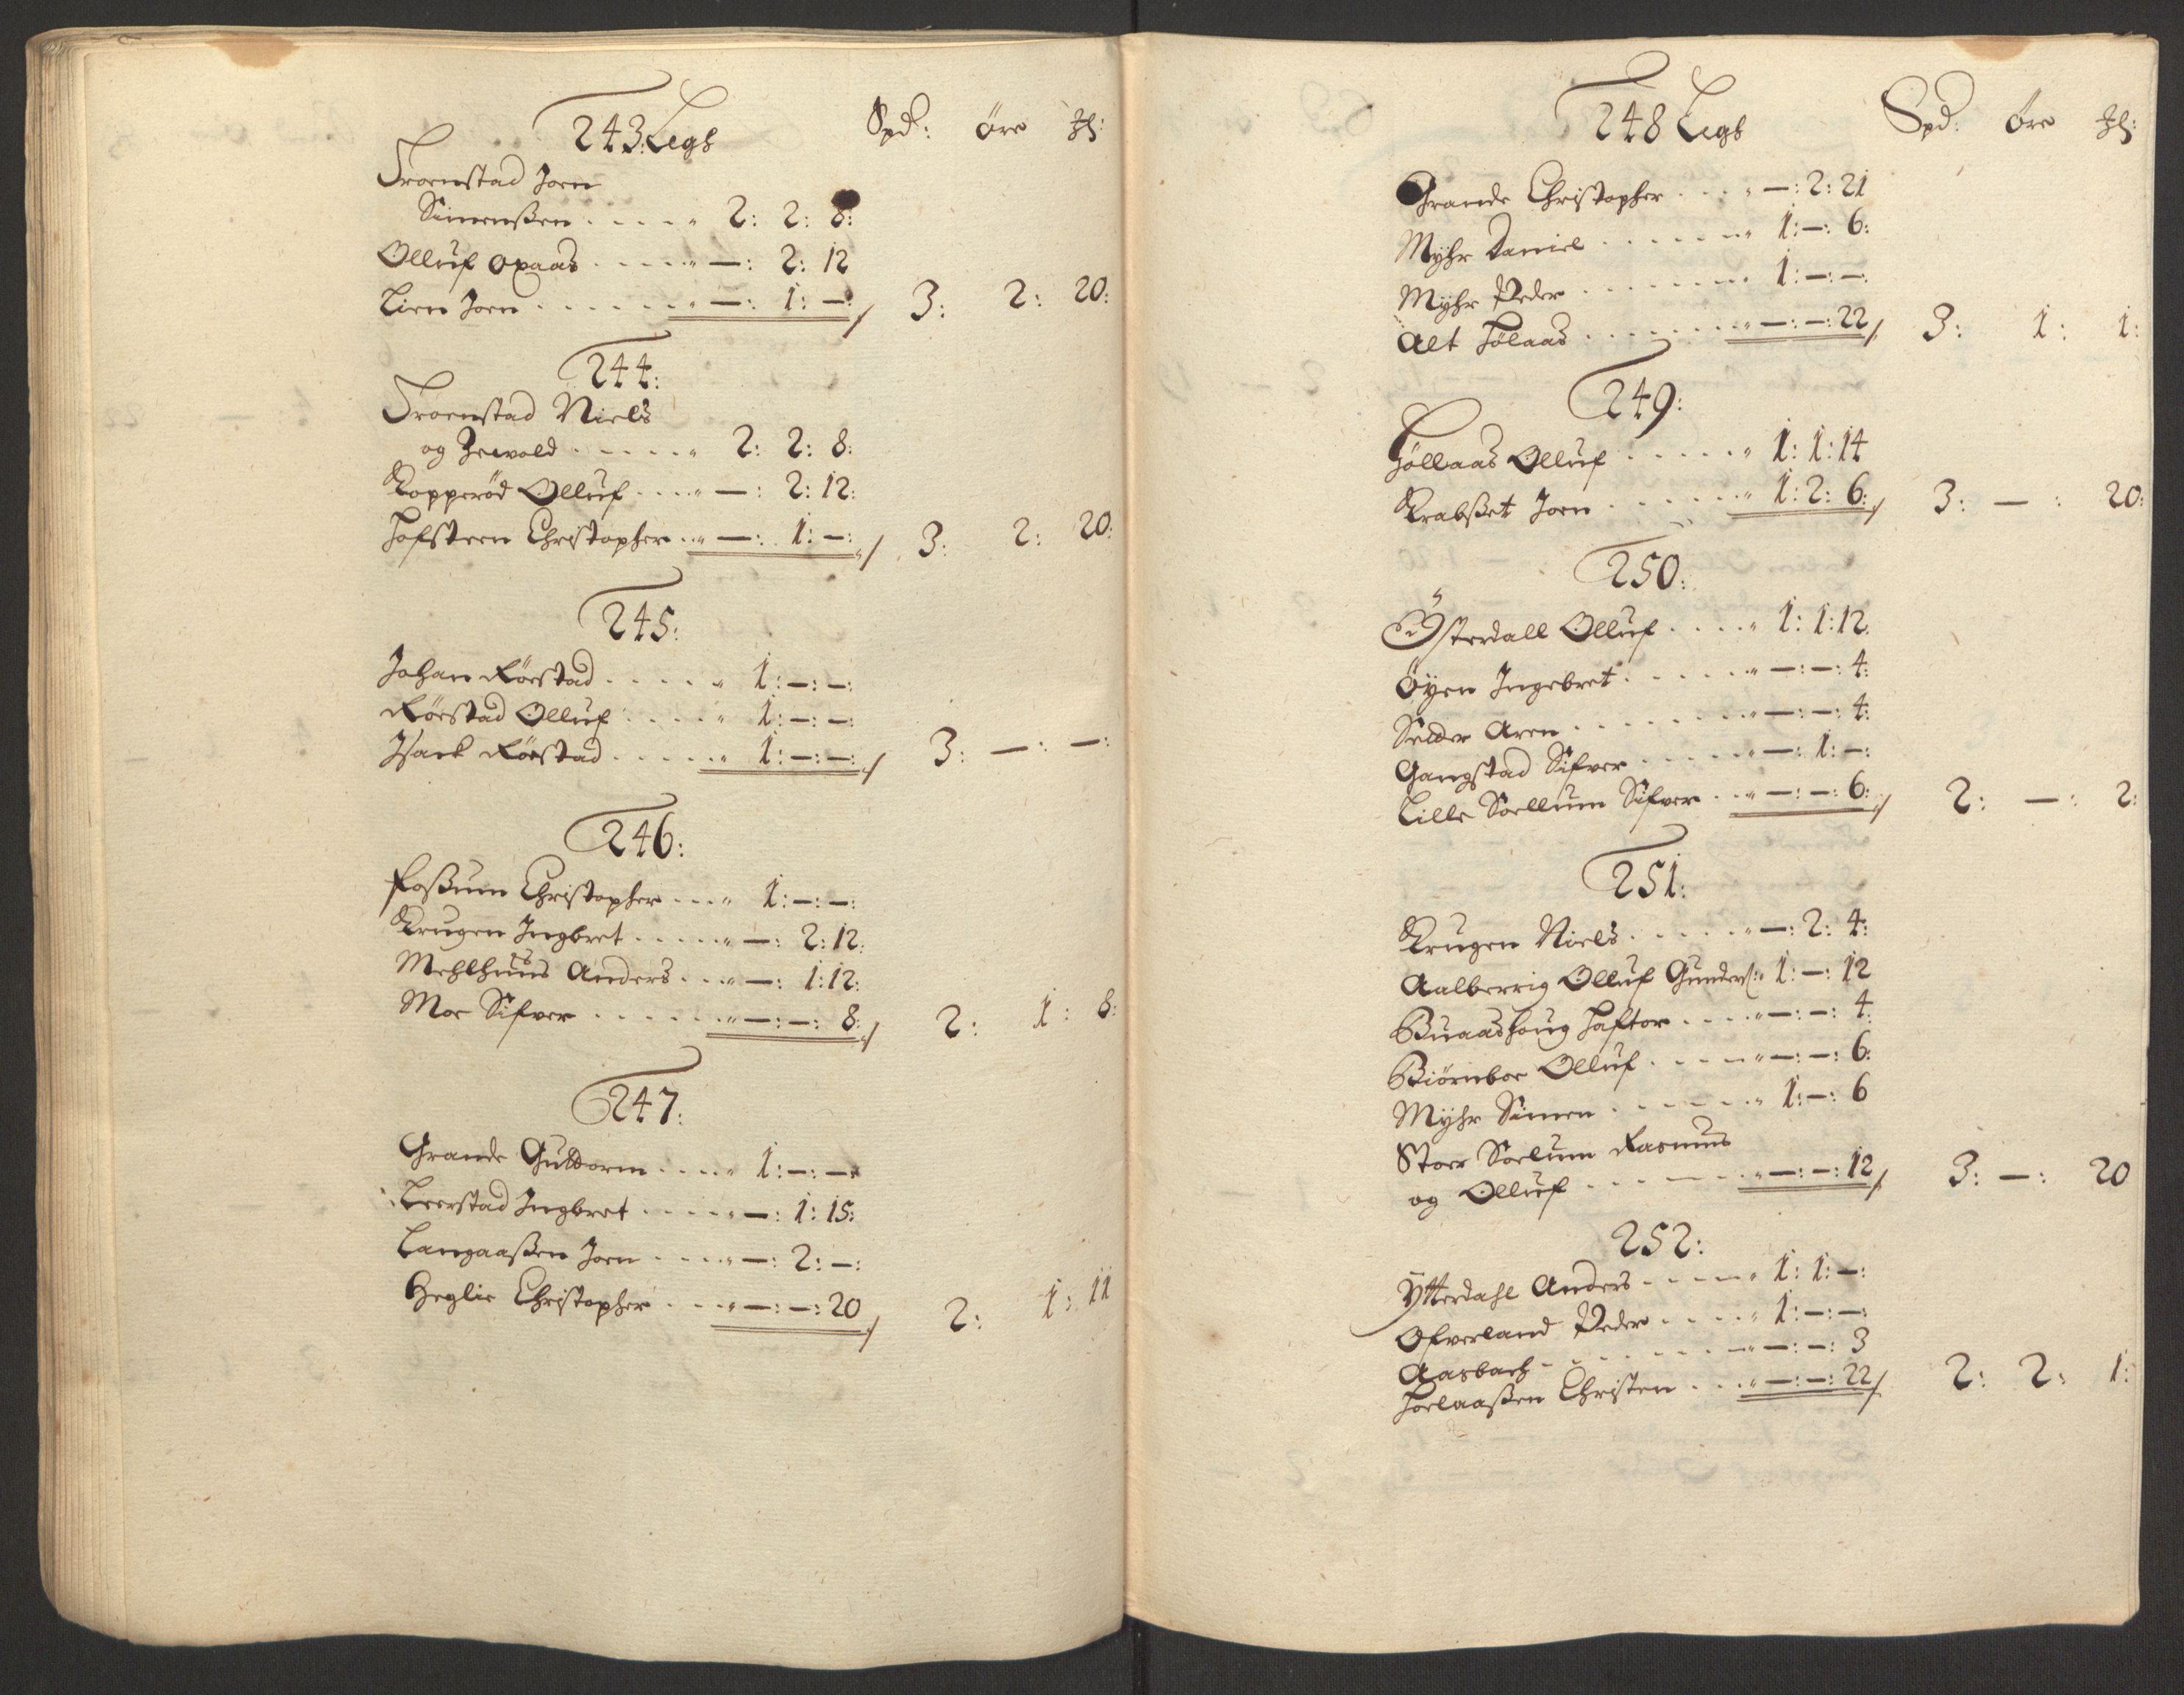 243 Legh Spd: öre ꝳ:
Troenstad Joen
Simenßen . . . . . 2: 2: 8:
Olluf Opaas . . . . . —: 2: 12
Lien Joen . . . . . —: 1: —: / 3: 2: 20:
244:
Troenstad Niels
og Zewold . . . . . 2: 2: 8:
Kopperöd Olluf . . . . —: 2: 12:
Hofsteen Christopher . . —: 1: —: / 3: 2: 20:
245:
Johan Röestad . . . . . 1: —: —:
Röestad Olluf . . . . 1: —: —:
Isack Röestad . . . . . 1: —: —: / 3: —: —:
246:
Foßum Christopher . . . 1: —: —:
Krugen Ingbret . . . . . —: 2: 12:
Mehlhuus Anders . . . —: 1: 12:
Moe Sifver . . . . . —: —: 8: / 2: 1: 8:
247:
Grande Guttorm . . . . 1: —: —:
Leerstad Ingbret . . . . —: 1: 15:
Langaaßen Joen . . . . —: 2: —:
Heglie Christopher . . . —: —: 20 / 2: 1: 11
248 Legh Spd: öre ꝳ:
Grande Christopher . . . . —: 2: 21
Myhr Daniel . . . . . 1: —: 6:
Myhr Peder . . . . . . 1: —: —:
Alt Hølaas . . . . . . —: —: 22 / 3: 1: 1:
249:
Höllaas Olluf . . . . . 1: 1: 14
Krabßet Joen . . . . . 1: 2: 6: / 3: —: 20:
250:
Österdall Olluf . . . . 1: 1: 12
Öyen Ingebret . . . . . —: —: 4:
Selder Aren . . . . . . —: —: 4:
Gangstad Sifver . . . . . —: 1: —:
Lille Soellum Sifver . . —: —: 6: / 2: —: 2:
251:
Krugen Niels . . . . . —: 2: 4:
Aalberrig Olluf Gunders: 1: —: 12
Buaashoug Haftor . . . . —: —: 4:
Biörnboe Olluf . . . . —: —: 6:
Myhr Simen . . . . . 1: —: 6
Stoer Soelum Rasmus
og Olluf . . . . . . —: —: 12 / 3: —: 20
252:
Ytterdahl Anders . . . . 1: 1: —:
Ofverland Peder . . . . 1: —: —:
Aasbach . . . . . . —: —: 3
Hoelaaßen Christen . . . —: —: 22 / 2: 2: 1: